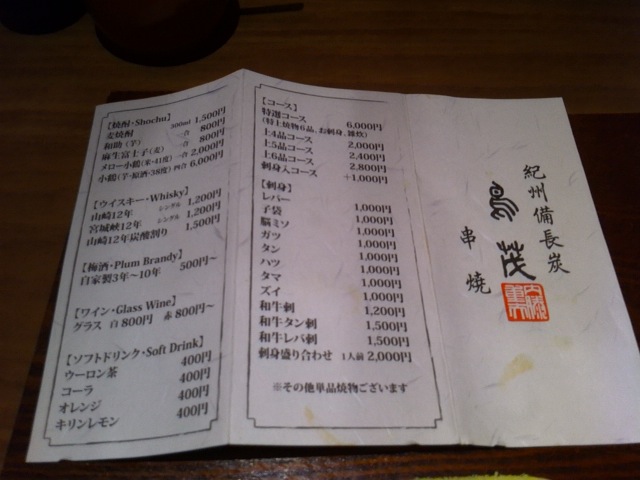 【焼酎・Shochu】
麦焼酎 300ml 1,500円
和助(芋) 一合 800円
麻生富士子(麦) 一合 800円
メロー小鶴(米・41度) 一合 2,000円
小鶴(芋・原酒・38度) 四合 6,000円
【ウイスキー・Whisky】
山崎12年 シングル 1,200円
宮城峡12年 シングル 1,200円
山崎12年炭酸割り 1,500円
【梅酒・Plum Brandy】
自家製3年〜10年 500円〜
【ワイン・Glass Wine】
グラス 白 800円 赤 800円〜
【ソフトドリンク・Soft Drink】
ウーロン茶 400円
コーラ 400円
オレンジ 400円
キリンレモン 400円
【コース】
特選コース 6,000円
(特上焼物6品、お刺身、雑炊)
上4品コース 2,000円
上5品コース 2,400円
上6品コース 2,800円
刺身入コース +1,000円
【刺身】
レバー 1,000円
子袋 1,000円
脳ミソ 1,000円
ガツ 1,000円
タン 1,000円
ハツ 1,000円
タマ 1,000円
ズイ 1,000円
和牛刺 1,200円
和牛タン刺 1,500円
和牛レバ刺 1,500円
刺身盛り合わせ 1人前 2,000円
※その他単品焼物ございます
紀州備長炭
鳥茂
串焼